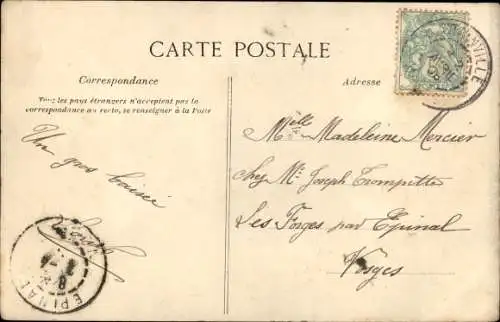 CARTE POSTALE
Correspondance
Tous les pays étrangers n'acceptent pas la
correspondance au recto, se renseigner à la Poste
Un gros baiser
Adresse
Melle Madeleine Mercier
Chez Mr Joseph Trompitte
Les Forges par Epinal
Vosges
EPINAL
VILLE